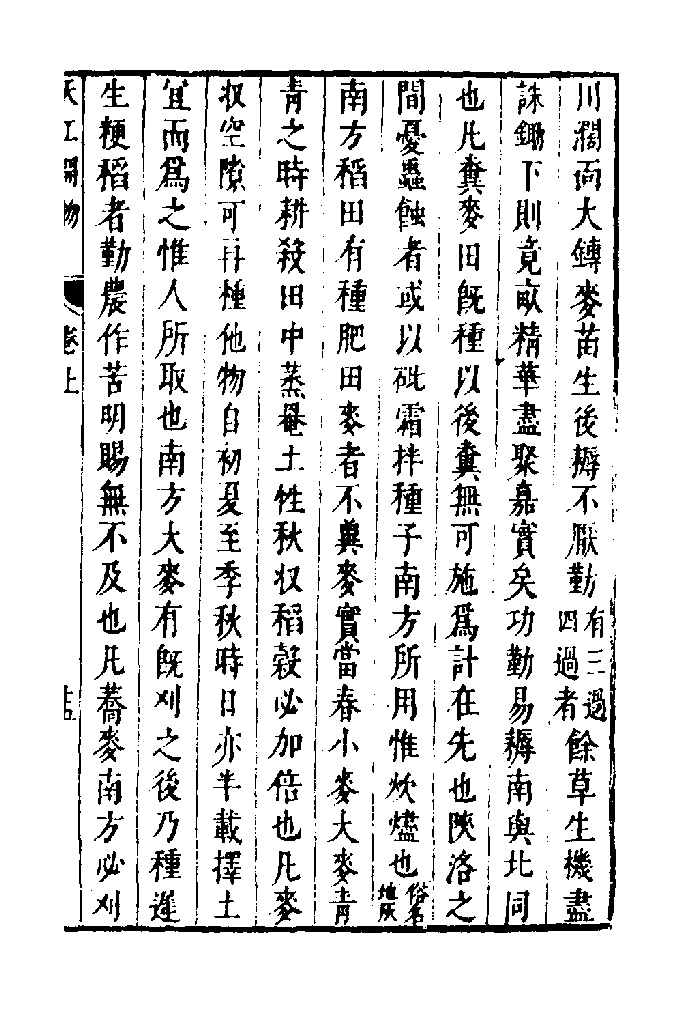 川濶面大鏄麥苗生後耨不厭勤有三過四過者餘草生機盡
誅鋤下則竟畝精華盡聚嘉實矣功勤易耨南與北同
也凡糞麥田旣種以後糞無可施爲計在先也陝洛之
間憂蟲蝕者或以砒霜拌種子南方所用惟炊燼也俗名地灰
南方稻田有種肥田麥者不糞麥實當春小麥大麥青
青之時耕殺田中蒸罨土性秋収稻穀必加倍也凡麥
収空隙可再種他物自初夏至季秋時日亦半載擇土
宜而爲之惟人所取也南方大麥有旣刈之後乃種遲
生粳稻者勤農作苦明賜無不及也凡蕎麥南方必刈
天工開物 卷上